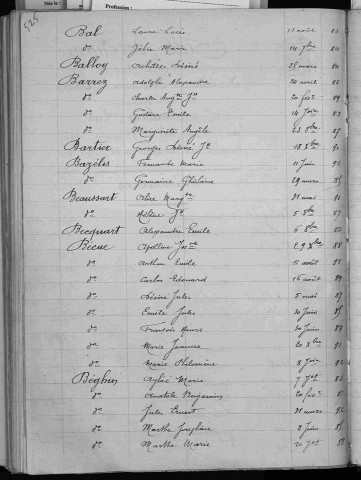 Prénoms :
525
Bal Laure Lucie 13 août 83
do Julie Marie 14 7bre 84
Balloy Achille Désiré 28 mars 84
Barrez Adolphe Alexandre 24 avril 88
do Charles Augte Jh 20 fév 89
do Gustave Emile 14 Juin 83
do Marguerite Angèle 23 8bre 87
Bartier Georges Désiré Jh 18 Xbre 90
Bazélis Fernande Marie 11 Juin 92
do Germaine Ghislaine 29 mars 85
Beaussart Alice Margte 31 mai 90
do Hélène Jh 5 8bre 87
Becquart Alexandre Emile 6 8bre 81
Bécue Apolline Jos 29 Xbre 88
do Arthur Emile 11 août 92
do Carlos Edouard 16 août 89
do Désiré Jules 5 mai 87
do Emile Jules 30 Juin 85
do François 30 Juin 84
do Marie Jeanne 20 Xbre 91
do Marie Philomène 8 Juin 92
Béghin Aglaé Marie 7 Jer 83
do Anatole Benjamin 20 fév
do Jules Ernest 31 mars 92
do Marthe Josephine 2 Juin 85
do Marthe Marie 10 7bre 81